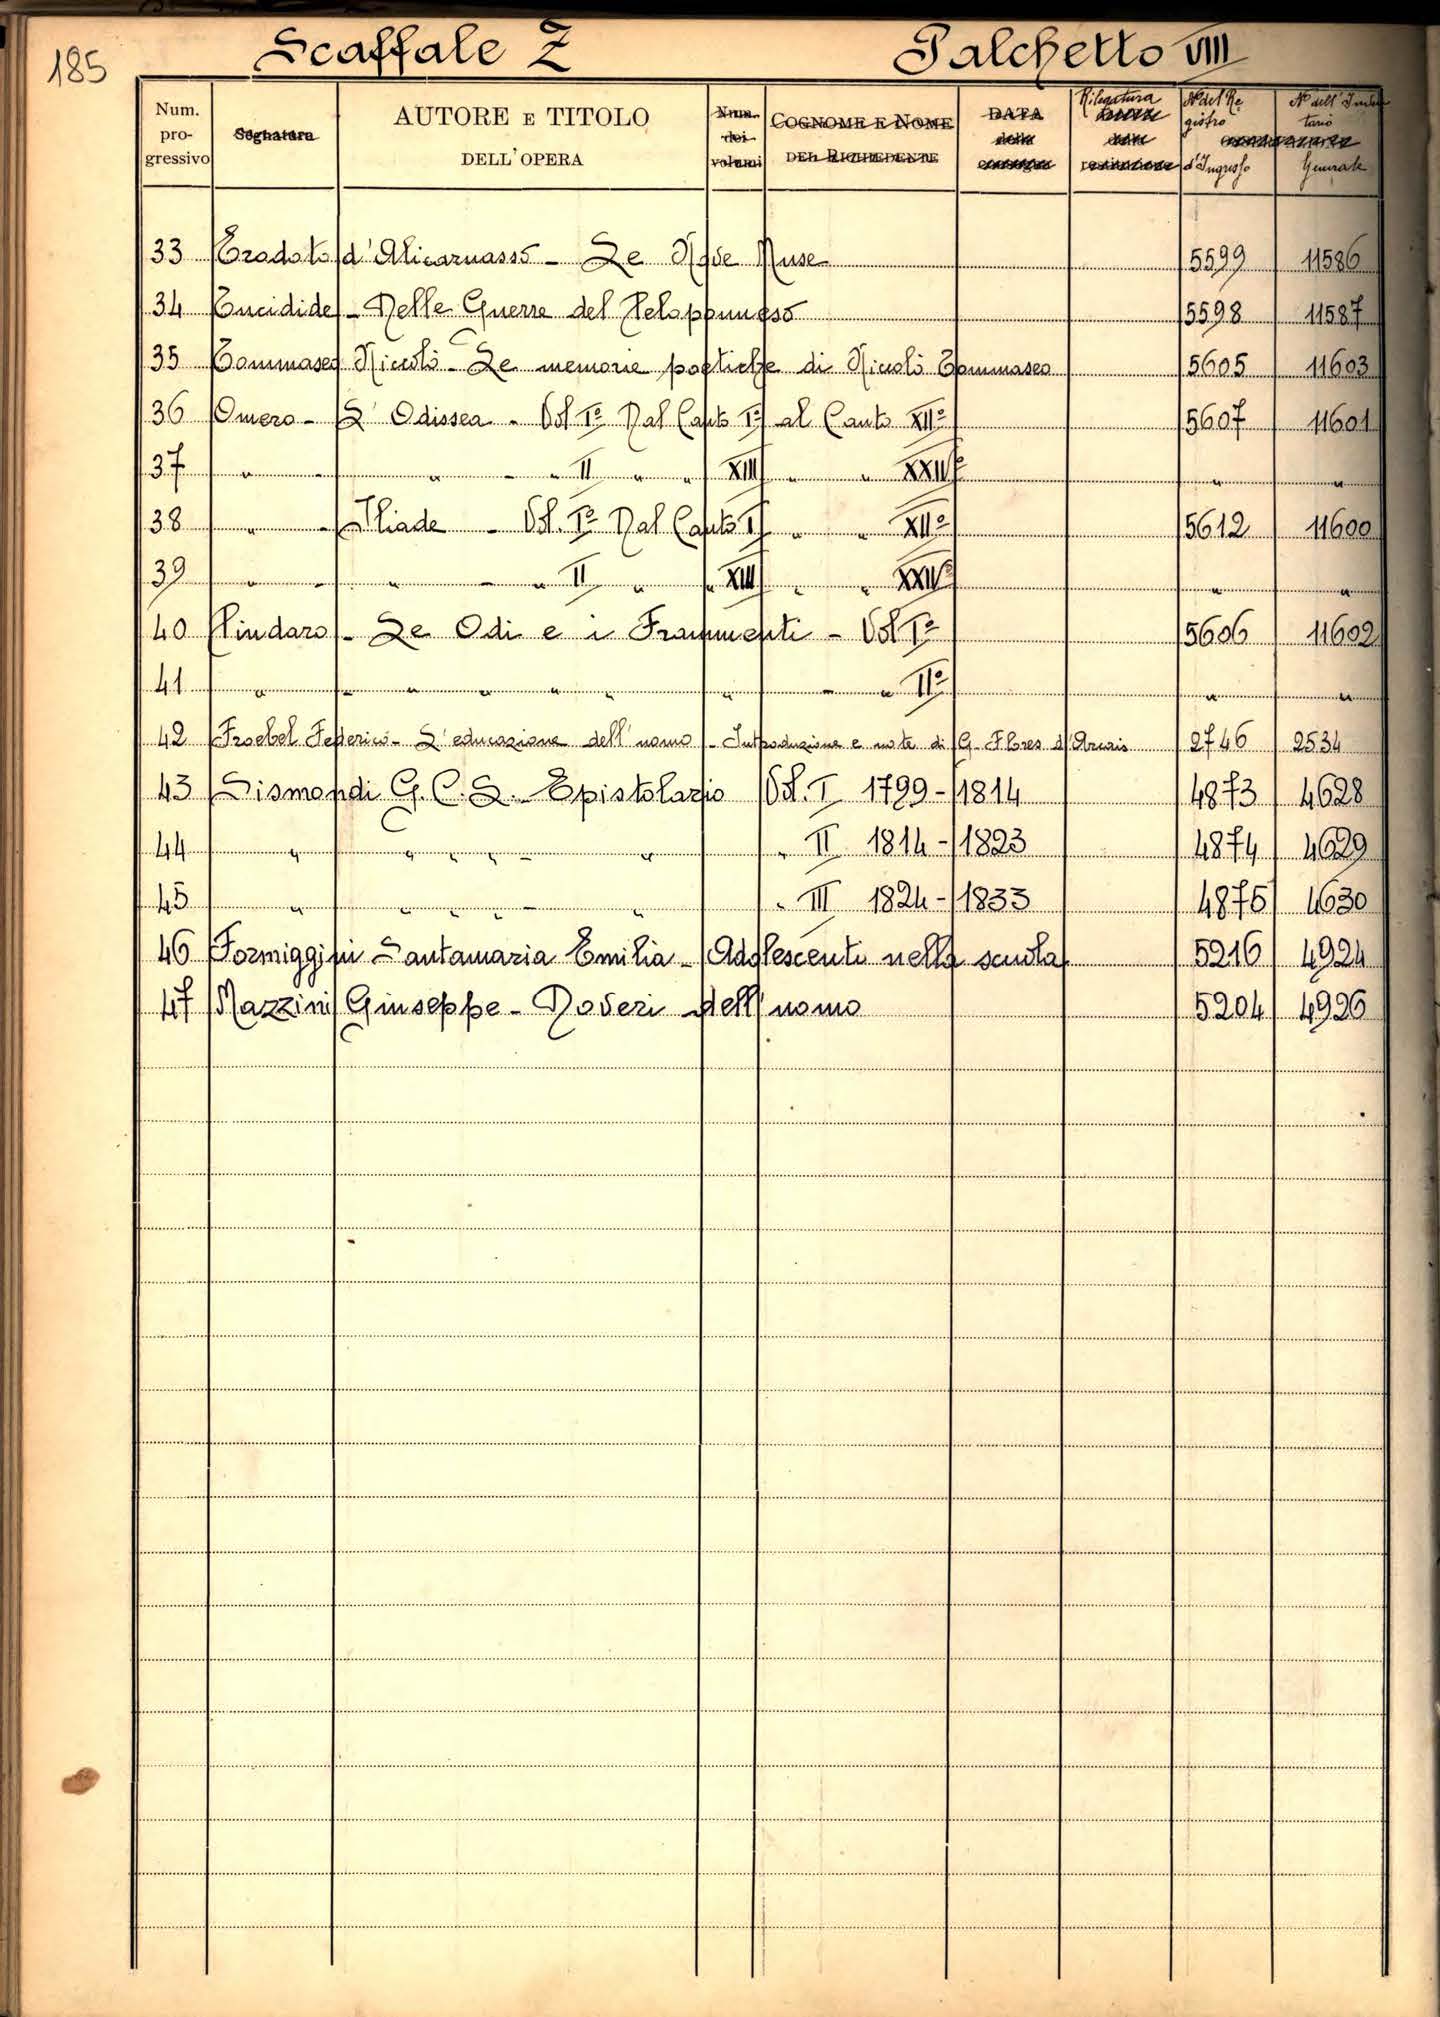 185
Scaffale Z Palchetto VIII
Num. progressivo Segnatura AUTORE E TITOLO DELL'OPERA Num. dei volumi COGNOME E NOME DEL RICHIEDENTE DATA della consegna Rilegatura restituzione No del Registro d'Ingresso No dell'Inventario Generale
33 Erodoto d'Alicarnasso - Le Nove Muse 5599 11586
34 Tucidide - Delle Guerre del Peloponneso 5598 11587
35 Tommaseo Niccolò - Le memorie poetiche di Nicolò Tommaseo 5605 11603
36 Omero - L'Odissea - Vol Iº Dal Canto Iº al Canto XIIº 5607 11601
37 " - " - " II " " XIII " " XXIVº " "
38 " - Iliade - Vol. Iº Dal Canto I " " XIIº 5612 11600
39 " - " - " II " " XIII " " XXIVº " "
40 Pindaro - Le Odi e i Frammenti - Vol Iº 5606 11602
41 " - " " " " " - " IIº " "
42 Froebel Federico - L'educazione dell'uomo - Introduzione e note di G. Flores d'Arcais 2746 2534
43 Sismondi G. C. L. - Epistolario Vol. I 1799 - 1814 4873 4628
44 " " " " - " " II 1814 - 1823 4874 4629
45 " " " " - " " III 1824 - 1833 4875 4630
46 Formiggini Santamaria Emilia - Adolescenti nella scuola 5216 4924
47 Mazzini Giuseppe - Doveri dell'uomo 5204 4926